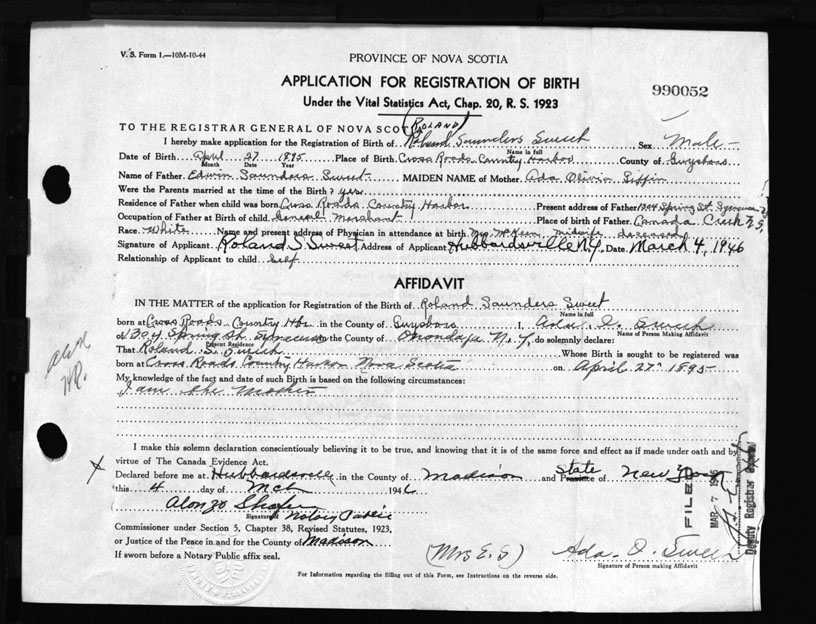 V. S. Form 1.—10M-10-44
PROVINCE OF NOVA SCOTIA
APPLICATION FOR REGISTRATION OF BIRTH
990052
Under the Vital Statistics Act, Chap. 20, R. S. 1923
(ROLAND)
TO THE REGISTRAR GENERAL OF NOVA SCOT
I hereby make application for the Registration of Birth of Roland Saunders Sweet Sex Male
Name in full
Date of Birth April 27 1895 Place of Birth Cross Roads Country Harbor County of Guysboro
Month Date Year
Name of Father Edwin Saunders Sweet MAIDEN NAME of Mother Ada Olivia
Were the Parents married at the time of the Birth? yes
Residence of Father when child was born Cross Roads Country Harbor Present address of Father 1304 Spring St. Syracuse
Occupation of Father at Birth of child General Merchant Place of birth of Father Canada Creek N.S.
Race White Name and present address of Physician in attendance at birth Mrs McKeen midwife deceased
Signature of Applicant Roland S. Sweet Address of Applicant Hubbardsville N.Y. Date March 4, 1946
Relationship of Applicant to child Self
AFFIDAVIT
IN THE MATTER of the application for Registration of the Birth of Roland Saunders Sweet
Name in full
born at Cross Roads Country Hbr in the County of Guysboro I, Ada O. Sweet
Name of Person Making Affidavit
of 1304 Spring St. Syracuse the County of Onondaga N.Y. do solemnly declare:
Present Residence
That Roland S. Sweet Whose Birth is sought to be registered was
born at Cross Roads Country Harbor Nova Scotia on April 27 1895
My knowledge of the fact and date of such Birth is based on the following circumstances:
I am the Mother
I make this solemn declaration conscientiously believing it to be true, and knowing that it is of the same force and effect as if made under oath and by
virtue of The Canada Evidence Act.
X Declared before me at Hubbardsville in the County of Madison and State Province of New York
this 4 day of Mch 1946
Alonzo
Signature of Notary Public
Commissioner under Section 5, Chapter 38, Revised Statutes, 1923,
or Justice of the Peace in and for the County of Madison
If sworn before a Notary Public affix seal.
(Mrs E. S) Ada. O. Sweet
Signature of Person making Affidavit
For Information regarding the filling out of this Form, see Instructions on the reverse side.
FILED
MAR - 7 1946
Deputy Registrar General